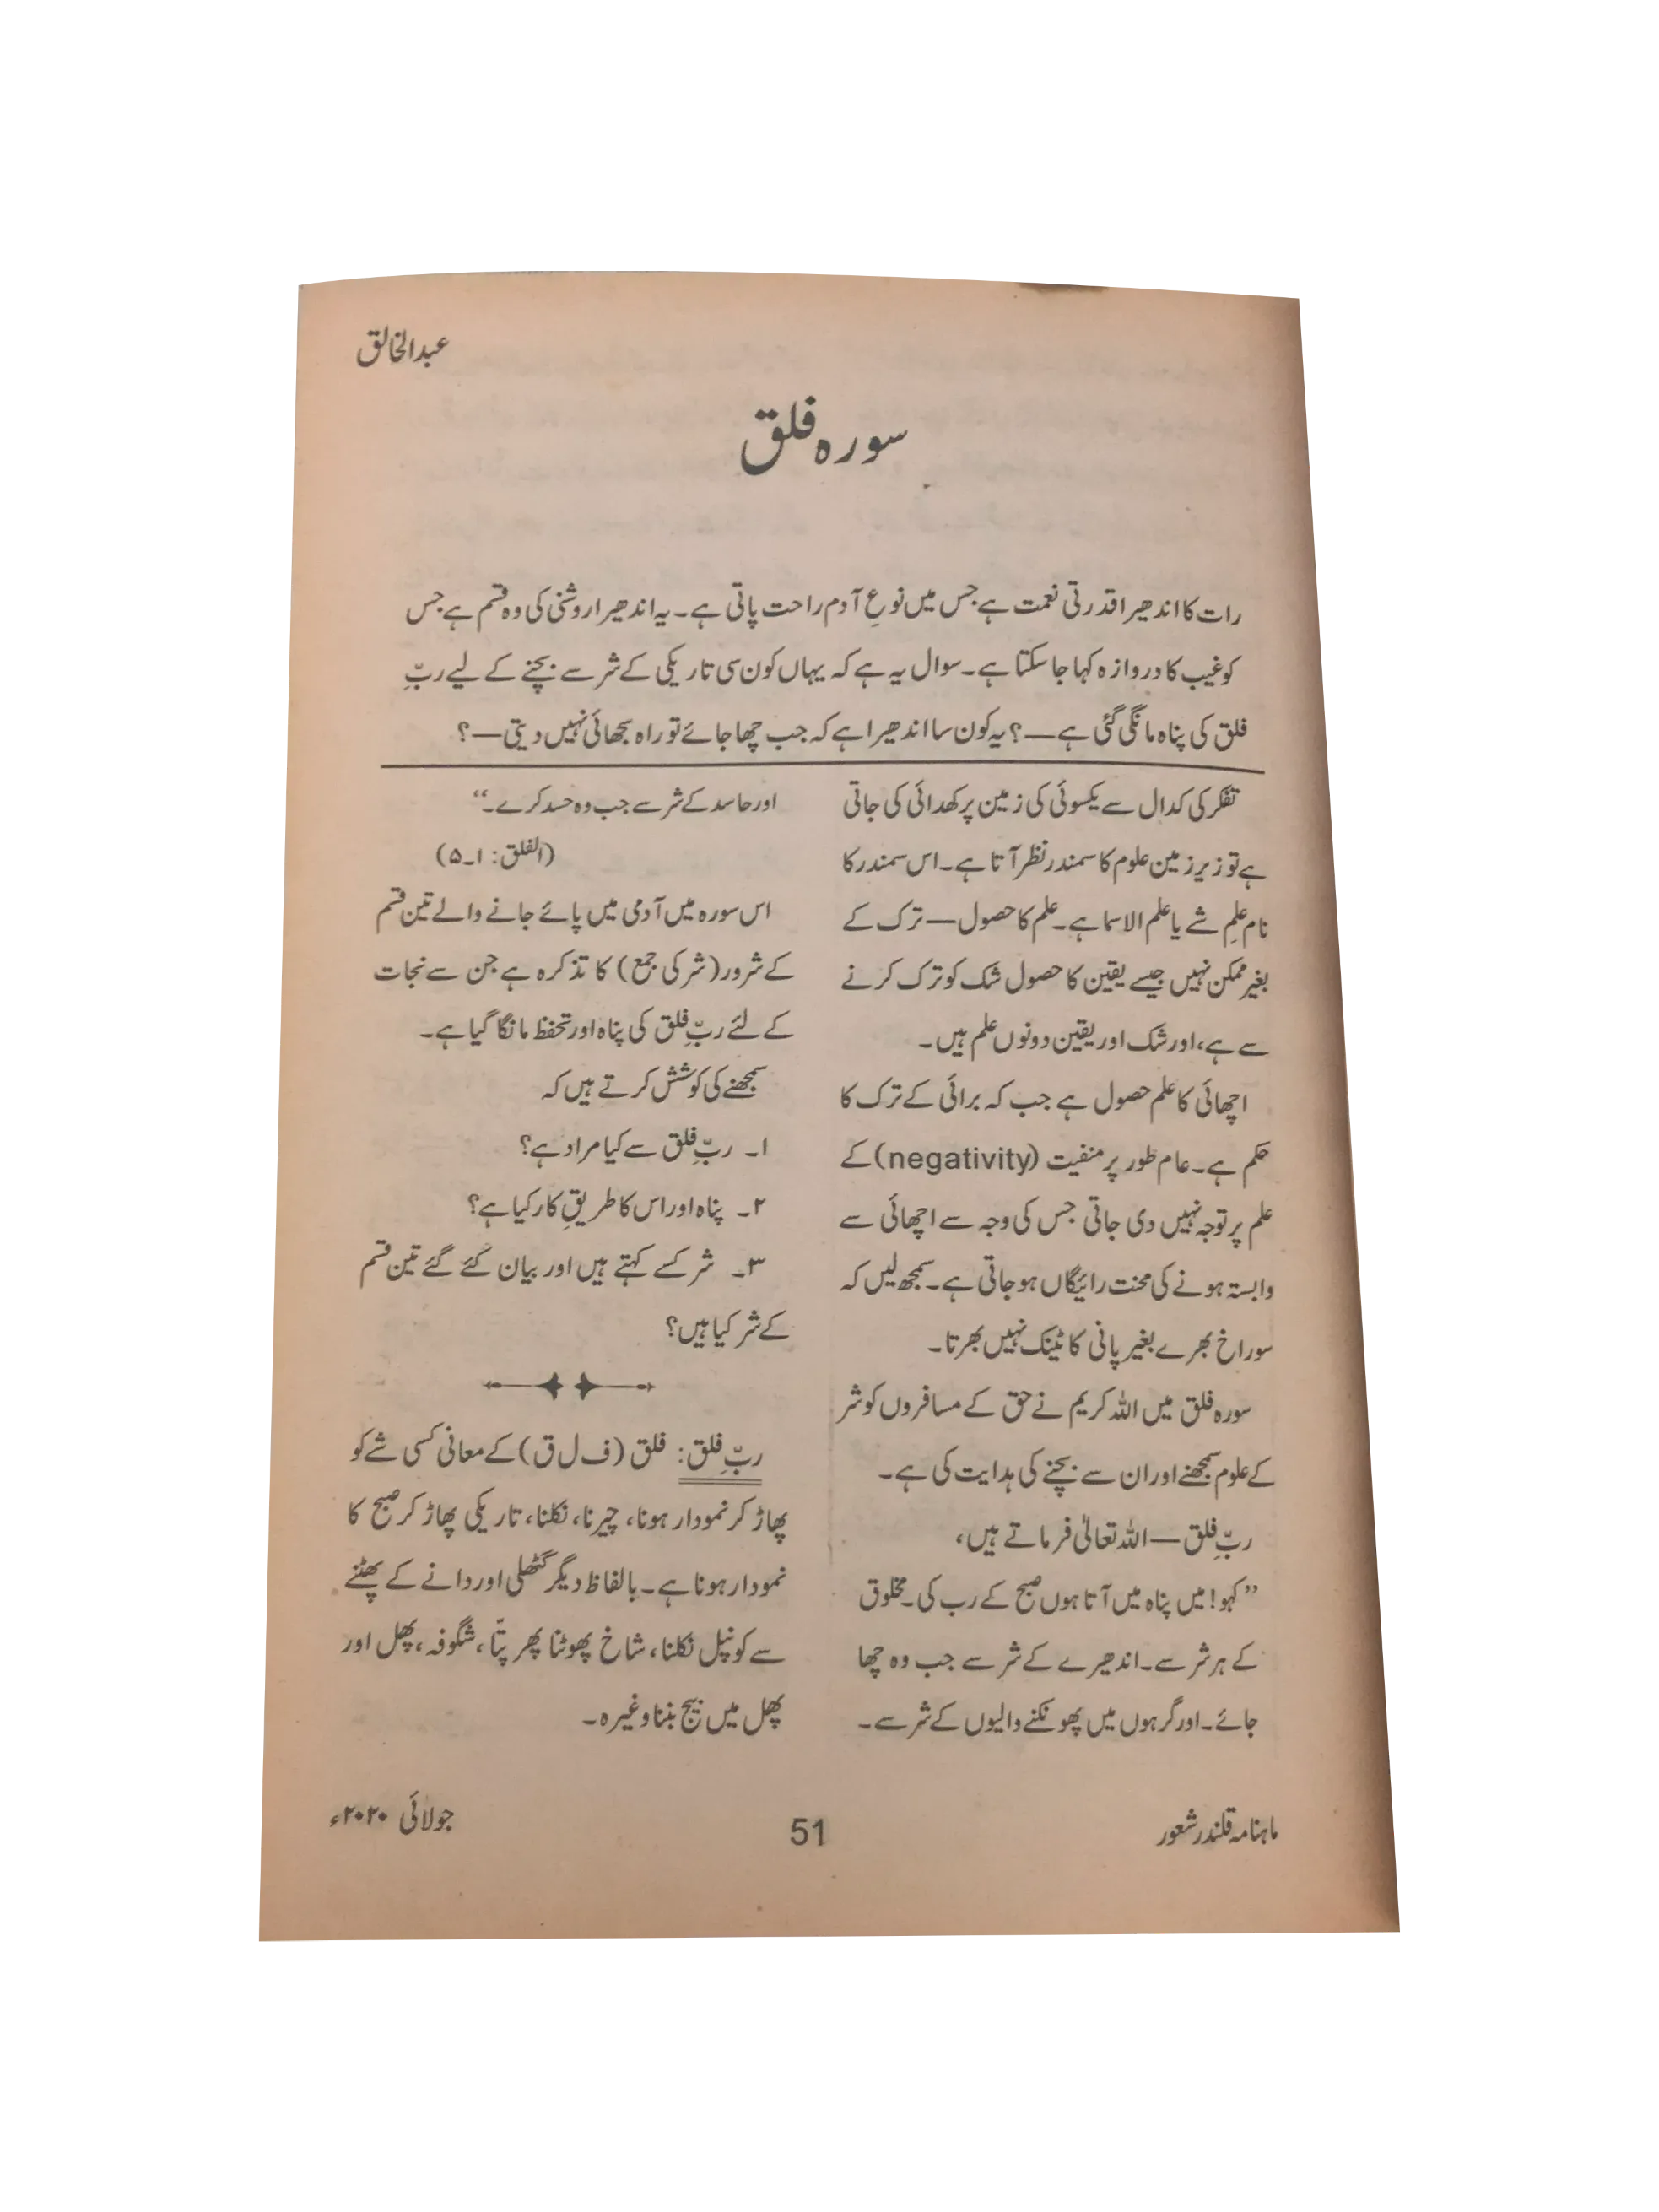 عبدالخالق
سورہ فلق
رات کا اندھیرا قدرتی نعمت ہے جس میں نوعِ آدم راحت پاتی ہے۔ یہ اندھیرا روشنی کی وہ قسم ہے جس
کو غیب کا دروازہ کہا جا سکتا ہے۔ سوال یہ ہے کہ یہاں کون سی تاریکی کے شر سے بچنے کے لیے ربِّ
فلق کی پناہ مانگی گئی ہے—؟ یہ کون سا اندھیرا ہے کہ جب چھا جائے تو راہ سجھائی نہیں دیتی—؟
تفکر کی کدال سے یکسوئی کی زمین پر کھدائی کی جاتی
ہے تو زیرِ زمین علوم کا سمندر نظر آتا ہے۔ اس سمندر کا
نام علمِ شے یا علم الاسما ہے۔ علم کا حصول—ترک کے
بغیر ممکن نہیں جیسے یقین کا حصول شک کو ترک کرنے
سے ہے، اور شک اور یقین دونوں علم ہیں۔
اچھائی کا علم حصول ہے جب کہ برائی کے ترک کا
حکم ہے۔ عام طور پر منفیت (negativity) کے
علم پر توجہ نہیں دی جاتی جس کی وجہ سے اچھائی سے
وابستہ ہونے کی محنت رائیگاں ہو جاتی ہے۔ سمجھ لیں کہ
سوراخ بھرے بغیر پانی کا ٹینک نہیں بھرتا۔
سورہ فلق میں اللہ کریم نے حق کے مسافروں کو شر
کے علوم سمجھنے اور ان سے بچنے کی ہدایت کی ہے۔
ربِّ فلق—اللہ تعالیٰ فرماتے ہیں،
”کہو! میں پناہ میں آتا ہوں صبح کے رب کی۔ مخلوق
کے ہر شر سے۔ اندھیرے کے شر سے جب وہ چھا
جائے۔ اور گرہوں میں پھونکنے والیوں کے شر سے۔
اور حاسد کے شر سے جب وہ حسد کرے۔“
(الفلق: ۱۔۵)
اس سورہ میں آدمی میں پائے جانے والے تین قسم
کے شرور (شر کی جمع) کا تذکرہ ہے جن سے نجات
کے لئے ربِّ فلق کی پناہ اور تحفظ مانگا گیا ہے۔
سمجھنے کی کوشش کرتے ہیں کہ
۱۔ ربِّ فلق سے کیا مراد ہے؟
۲۔ پناہ اور اس کا طریقِ کار کیا ہے؟
۳۔ شر کسے کہتے ہیں اور بیان کئے گئے تین قسم
کے شر کیا ہیں؟
ربِّ فلق: فلق (ف ل ق) کے معانی کسی شے کو
پھاڑ کر نمودار ہونا، چیرنا، نکلنا، تاریکی پھاڑ کر صبح کا
نمودار ہونا ہے۔ بالفاظ دیگر گٹھلی اور دانے کے پھٹنے
سے کونپل نکلنا، شاخ پھوٹنا پھر پتّا، شگوفہ، پھل اور
پھل میں بیج بننا وغیرہ۔
ماہنامہ قلندر شعور
51
جولائی ۲۰۲۰ء